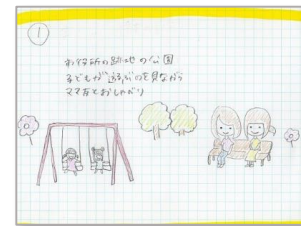 ①
お役所の跡地の公園
子どもが遊ぶのを見ながら
ママ友とおしゃべり